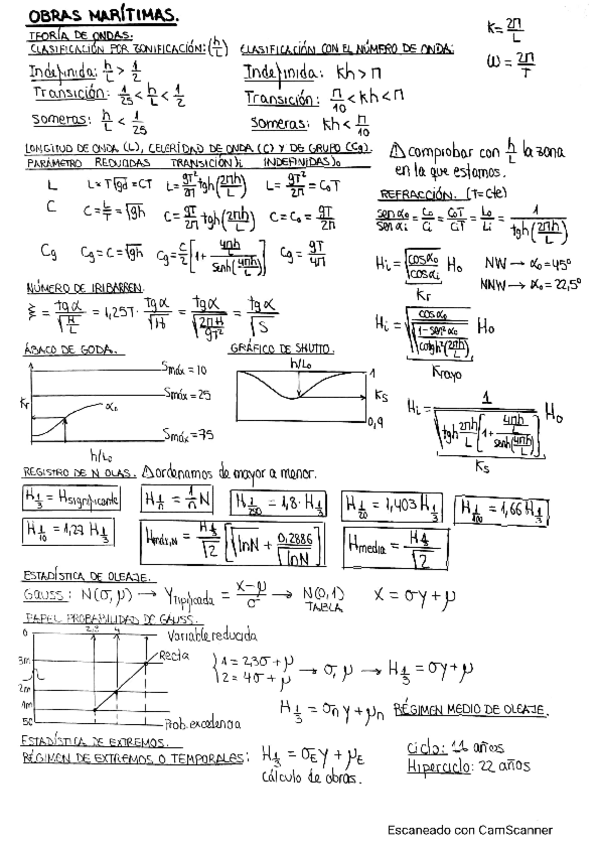 OBRAS MARÍTIMAS.
TEORÍA DE ONDAS:
CLASIFICACIÓN POR ZONIFICACIÓN: (h/L) CLASIFICACIÓN CON EL NÚMERO DE ONDA:
K = 2π/L
ω = 2π/T
Indefinida: h/L > 1/2 Indefinida: Kh > π
Transición: 1/25 < h/L < 1/2 Transición: π/10 < Kh < π
Someras: h/L < 1/25 Someras: Kh < π/10
LONGITUD DE ONDA (L), CELERIDAD DE ONDA (C) Y DE GRUPO (Cg).
PARÁMETRO REDUCIDAS TRANSICIÓN)i INDEFINIDAS)o
L L = T√gd = CT L = gT²/2π tgh(2πh/L) L = gT²/2π = CoT
C C = L/T = √gh C = gT/2π tgh(2πh/L) C = Co = gT/2π
Cg Cg = C = √gh Cg = C/2 [1 + (4πh/L)/(senh(4πh/L))] Cg = gT/4π
⚠ comprobar con h/L la zona
en la que estamos.
REFRACCIÓN. (T=Cte)
sen αo/sen αi = Co/Ci = CoT/CiT = Lo/Li = 1/tgh(2πh/L)
Hi = √(cos αo/cos αi) Ho NW → αo = 45°
Kr NNW → αo = 22,5°
Hi = √(cos αo/√(1 - sen² αo/cotgh²(2πh/L))) Ho
Krayo
Hi = 1/√(tgh 2πh/L [1 + (4πh/L)/(senh(4πh/L))]) Ho
Ks
NÚMERO DE IRIBARREN.
ξ = tgα/√(H/L) = 1,25T · tgα/√H = tgα/√(2πH/gT²) = tgα/√S
ÁBACO DE GODA.
Smáx = 10
Smáx = 25
Kr
αo
Smáx = 75
h/Lo
GRÁFICO DE SHUTTO.
h/Lo
1
Ks
0,9
REGISTRO DE N OLAS. ⚠ ordenamos de mayor a menor.
H1/3 = Hsignificante H1/n = 1/n N H1/250 = 1,8 · H1/3 H1/20 = 1,403 H1/3 H1/100 = 1,66 H1/3
H1/10 = 1,27 H1/3 Hmáx,N = H1/3/√2 [√lnN + 0,2886/√lnN] Hmedia = H1/3/√2
ESTADÍSTICA DE OLEAJE.
GAUSS: N(σ, μ) → Ytipificada = (x-μ)/σ → N(0,1) X = σy + μ
TABLA
PAPEL PROBABILIDAD DE GAUSS.
0
4
Variable reducida
3m
Recta
2m
1m
50
Prob. excedencia
{1 = 2,3σ + μ
2 = 4σ + μ → σ, μ → H1/3 = σy + μ
H1/3 = σn y + μn RÉGIMEN MEDIO DE OLEAJE.
ESTADÍSTICA DE EXTREMOS.
RÉGIMEN DE EXTREMOS O TEMPORALES: H1/3 = σE y + μE
cálculo de obras.
Ciclo: 11 años
Hiperciclo: 22 años
Escaneado con CamScanner